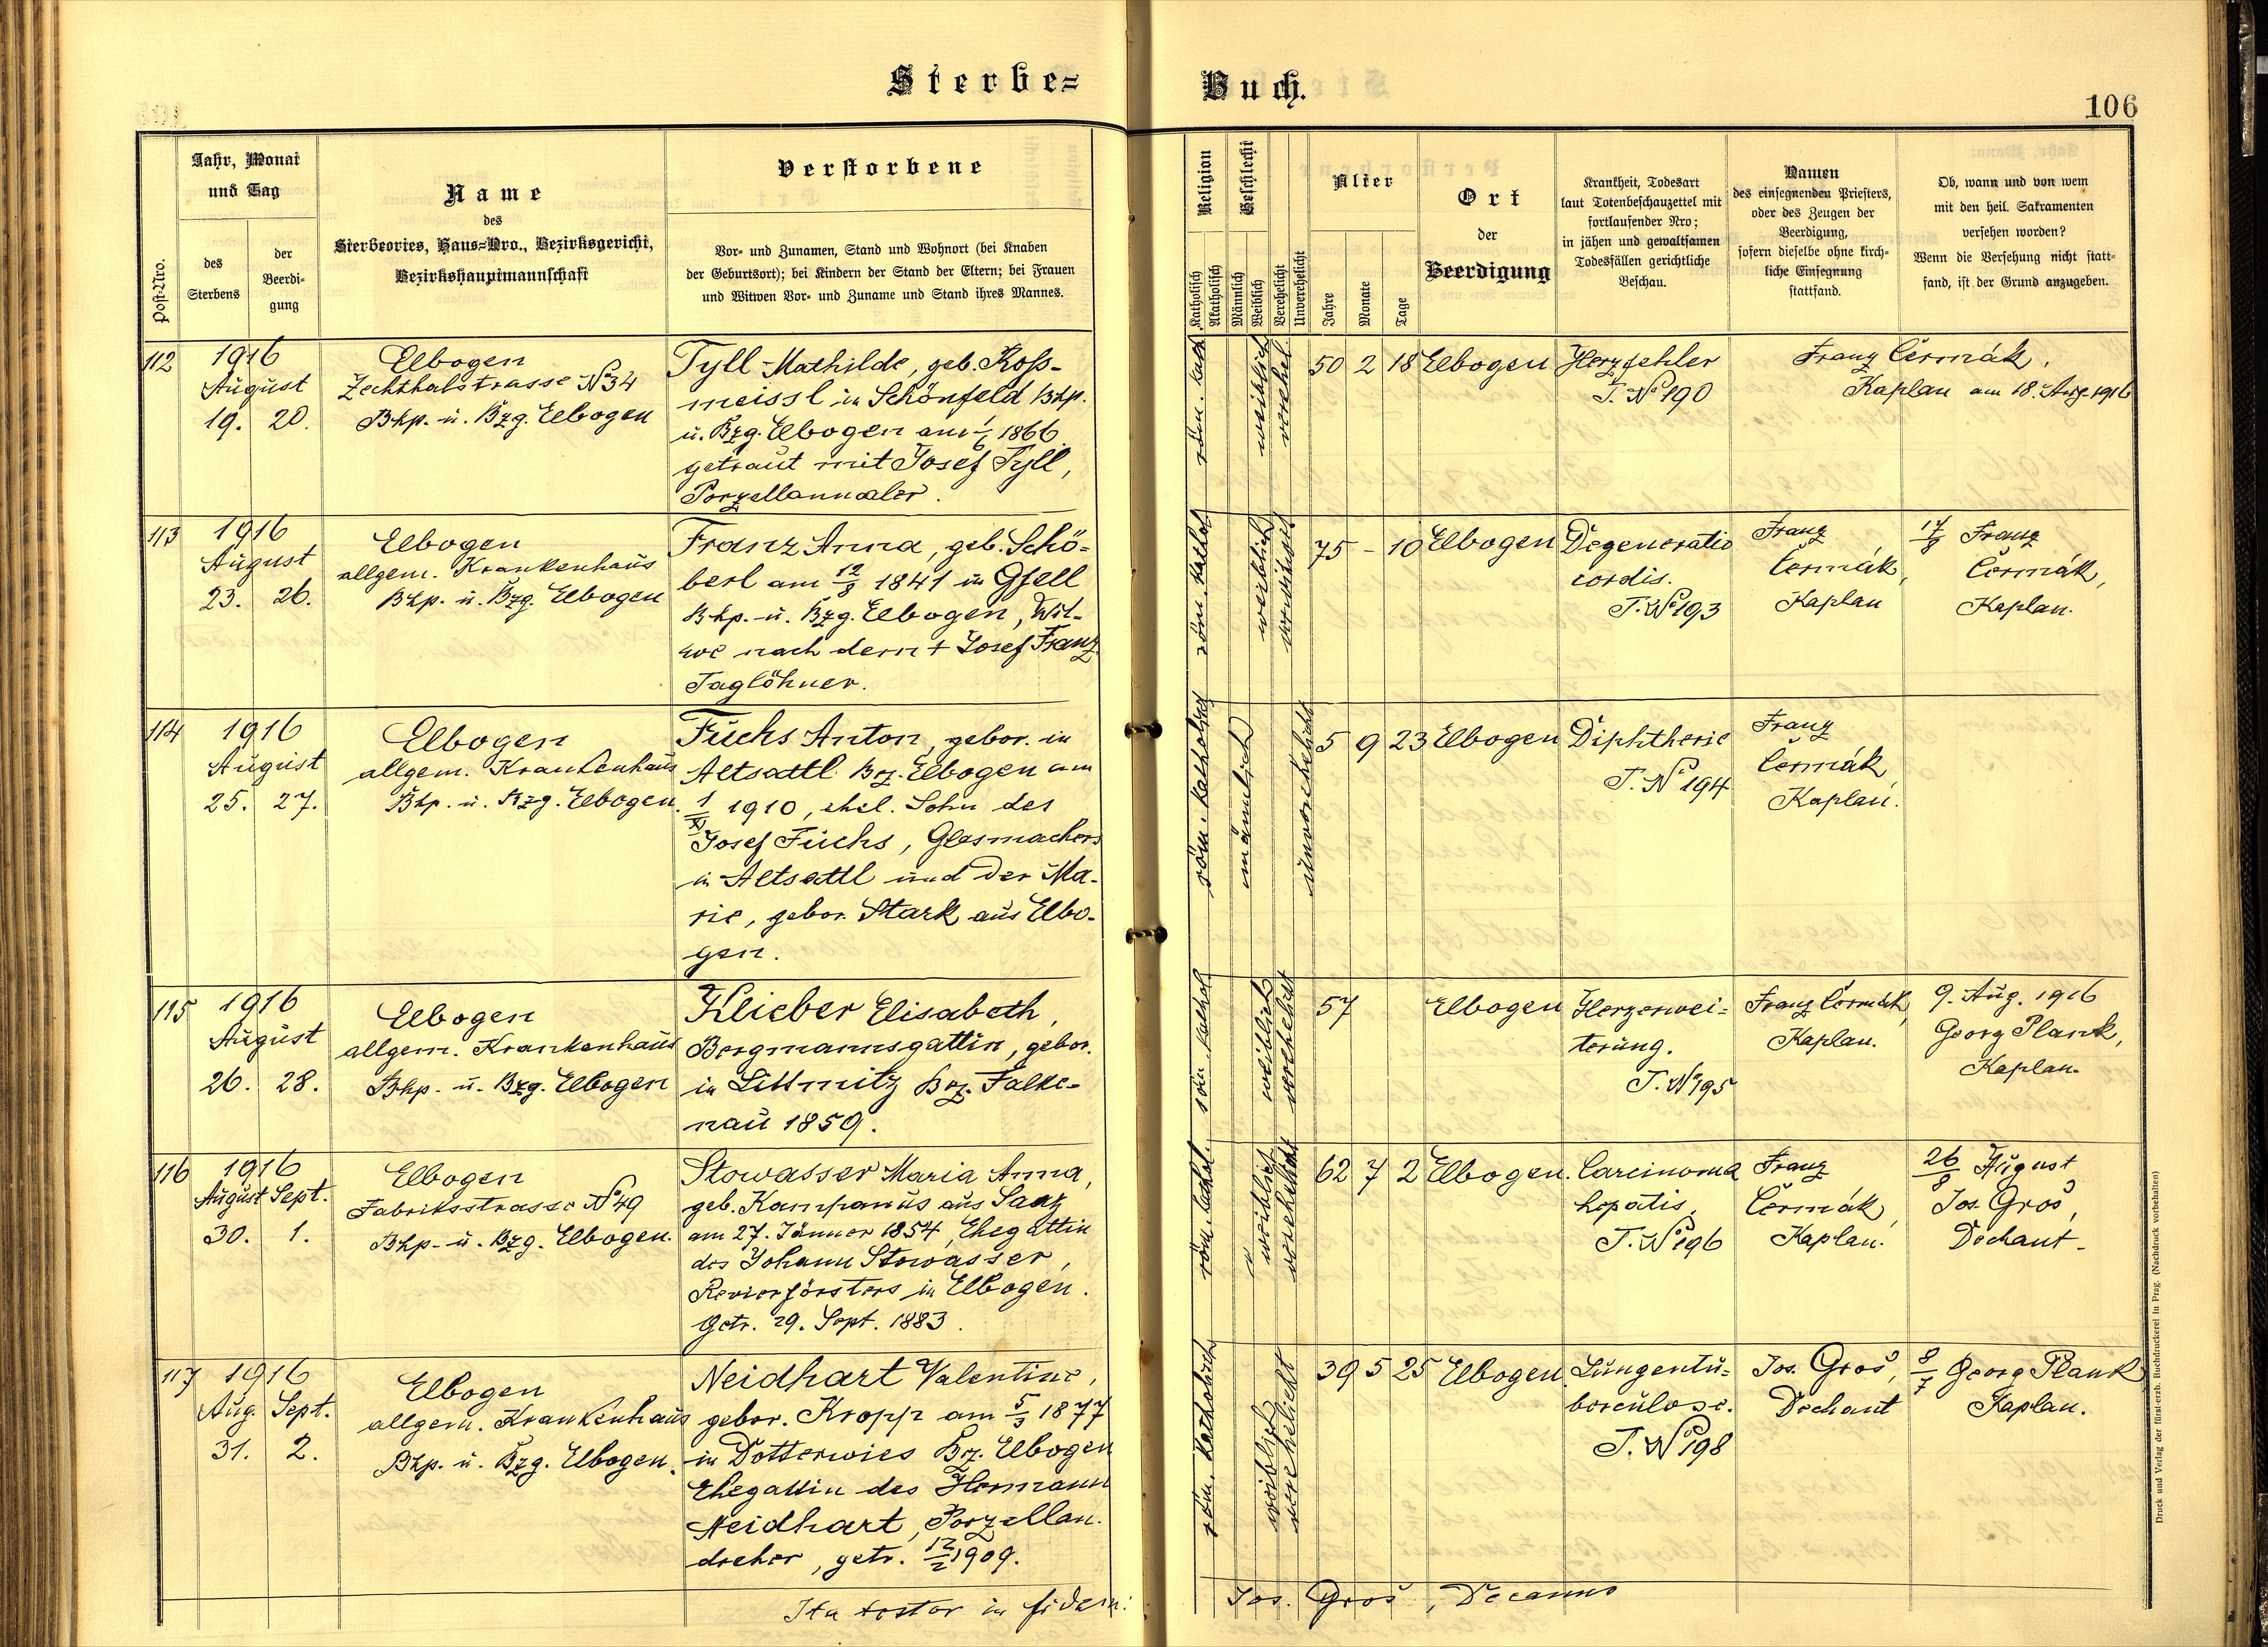 Sterbe-
Buch.
106
Post-Nro.
Jahr, Monat
und Tag
des
Sterbens
der
Beerdi-
gung
Name
des
Sterbeortes, Haus-Nro., Bezirksgericht,
Bezirkshauptmannschaft
Verstorbene
Vor- und Zunamen, Stand und Wohnort (bei Knaben
der Geburtsort); bei Kindern der Stand der Eltern; bei Frauen
und Witwen Vor- und Zuname und Stand ihres Mannes.
Religion
Katholisch
Akatholisch
Geschlecht
Männlich
Weiblich
Verehelicht
Unverehelicht
Alter
Jahre
Monate
Tage
Ort
der
Beerdigung
Krankheit, Todesart
laut Totenbeschauzettel mit
fortlaufender Nro;
in jähen und gewaltsamen
Todesfällen gerichtliche
Beschau.
Namen
des einsegnenden Priesters,
oder des Zeugen der
Beerdigung,
sofern dieselbe ohne kirch-
liche Einsegnung
stattfand.
Ob, wann und von wem
mit den heil. Sakramenten
versehen worden?
Wenn die Versehung nicht statt-
fand, ist der Grund anzugeben.
112
1916
August
19. 20.
Elbogen
Zechthalstrasse No 34
Bhp. u. Bzg. Elbogen
Tyll Mathilde, geb. Ross-
meissl in Schönfeld Bhp.
u. Bzg. Elbogen am 1/6 1866
getraut mit Josef Tyll,
Porzellanmaler.
röm. kath
weiblich
verehel
50 2 18
Elbogen
Herzfehler
T. No 190
Franz Čermák,
Kaplan am 18. Aug. 1916
113
1916
August
23. 26.
Elbogen
allgem. Krankenhaus
Bhp. u. Bzg. Elbogen
Franz Anna, geb. Schö-
berl am 12/8 1841 in Gfell
Bhp. u. Bzg. Elbogen, Wit-
we nach dem + Josef Franz
Taglöhner.
röm. kathol
weiblich
verwitwet
75 - 10
Elbogen
Degeneratio
cordis.
T. No 193
Franz
Čermák,
Kaplan
17/8 Franz
Čermák,
Kaplan.
114
1916
August
25. 27.
Elbogen
allgem. Krankenhaus
Bhp. u. Bzg. Elbogen.
Fuchs Anton, gebor. in
Altsattl Bz. Elbogen am
1/XI 1910, ehel. Sohn des
Josef Fuchs, Glasmachers
in Altsattl und der Ma-
rie, gebor. Stark aus Elbo-
gen.
röm. katholisch
männlich
unverehelicht
5 9 23
Elbogen
Diphtherie
T. No 194
Franz
Čermák,
Kaplan.
115
1916
August
26. 28.
Elbogen
allgem. Krankenhaus
Bhp. u. Bzg. Elbogen
Klieber Elisabeth,
Bergmannsgattin, gebor.
in Littmitz Bz. Falke-
nau 1859.
röm kathol
weiblich
verehelicht
57
Elbogen
Herzerwei-
terung.
T. No 195
Franz Čermák,
Kaplan.
9. Aug. 1916
Georg Plank,
Kaplan.
116
1916
August Sept.
30. 1.
Elbogen
Fabriksstrasse No 49
Bhp. u. Bzg. Elbogen.
Stowasser Maria Anna,
geb. Kampanus aus Saaz
am 27. Jänner 1854, Ehegattin
des Johann Stowasser,
Revierförsters in Elbogen.
Getr. 29. Sept. 1883.
röm. kathol.
weiblich
verehelicht
62 7 2
Elbogen.
Carcinoma
hepatis.
T. No 196
Franz
Čermák,
Kaplan.
26/8 August
Jos. Groš,
Dechant.
117
1916
Aug. Sept.
31. 2.
Elbogen
allgem. Krankenhaus
Bhp. u. Bzg. Elbogen.
Neidhart Valentine,
gebor. Kropp am 5/3 1877
in Dotterwies Bz. Elbogen
Ehegattin des Hermann
Neidhart, Porzellan.
dreher, getr. 12/2 1909.
röm. katholisch
weiblich
verehelicht
39 5 25
Elbogen
Lungentu-
berculose.
T. No 198
Jos. Groš,
Dechant
8/7 Georg Plank
Kaplan.
Ita testor in fidem:
Jos. Groš, Decanus
Druck und Verlag der fürst-erzb. Buchdruckerei in Prag. (Nachdruck vorbehalten)